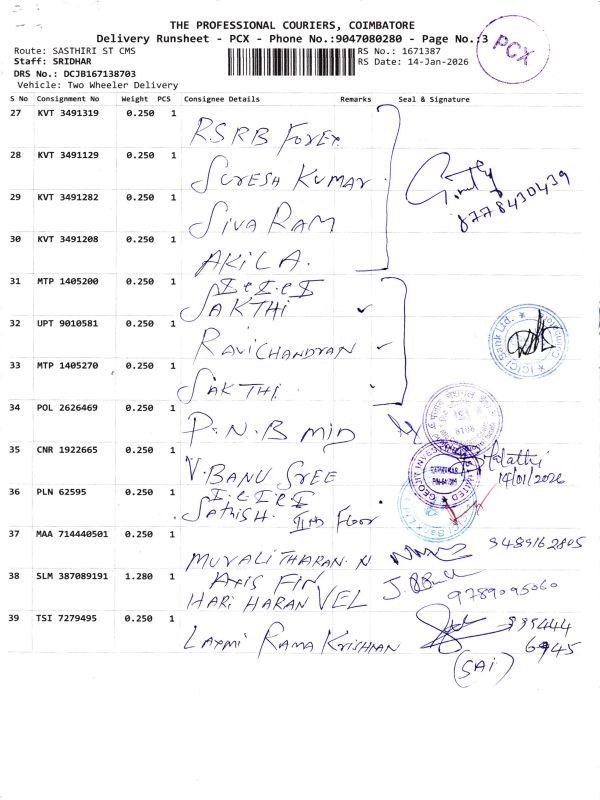 THE PROFESSIONAL COURIERS, COIMBATORE
Delivery Runsheet - PCX - Phone No.:9047080280 - Page No.:3
PCX
Route: SASTHIRI ST CMS
RS No.: 1671387
Staff: SRIDHAR
RS Date: 14-Jan-2026
DRS No.: DCJB167138703
Vehicle: Two Wheeler Delivery
S No Consignment No Weight PCS Consignee Details Remarks Seal & Signature
27 KVT 3491319 0.250 1 RSRB Forex
28 KVT 3491129 0.250 1 Suresh Kumar
8778430439
29 KVT 3491282 0.250 1 Siva Ram
30 KVT 3491208 0.250 1 AKILA.
31 MTP 1405200 0.250 1 SAKTHI
ICICI Bank Ltd.
32 UPT 9010581 0.250 1 RAVICHANDRAN
33 MTP 1405270 0.250 1 SAKTHI.
34 POL 2626469 0.250 1 P.N.B MID
35 CNR 1922665 0.250 1 V.BANU SREE
14/01/2026
36 PLN 62595 0.250 1 Sathish. IInd Floor
37 MAA 714440501 0.250 1 MURALITHARAN N
9489162805
38 SLM 387089191 1.280 1 AXIS FIN
HARI HARAN VEL
9789095060
39 TSI 7279495 0.250 1 LAXMI RAMA KRISHNAN
(SAI)